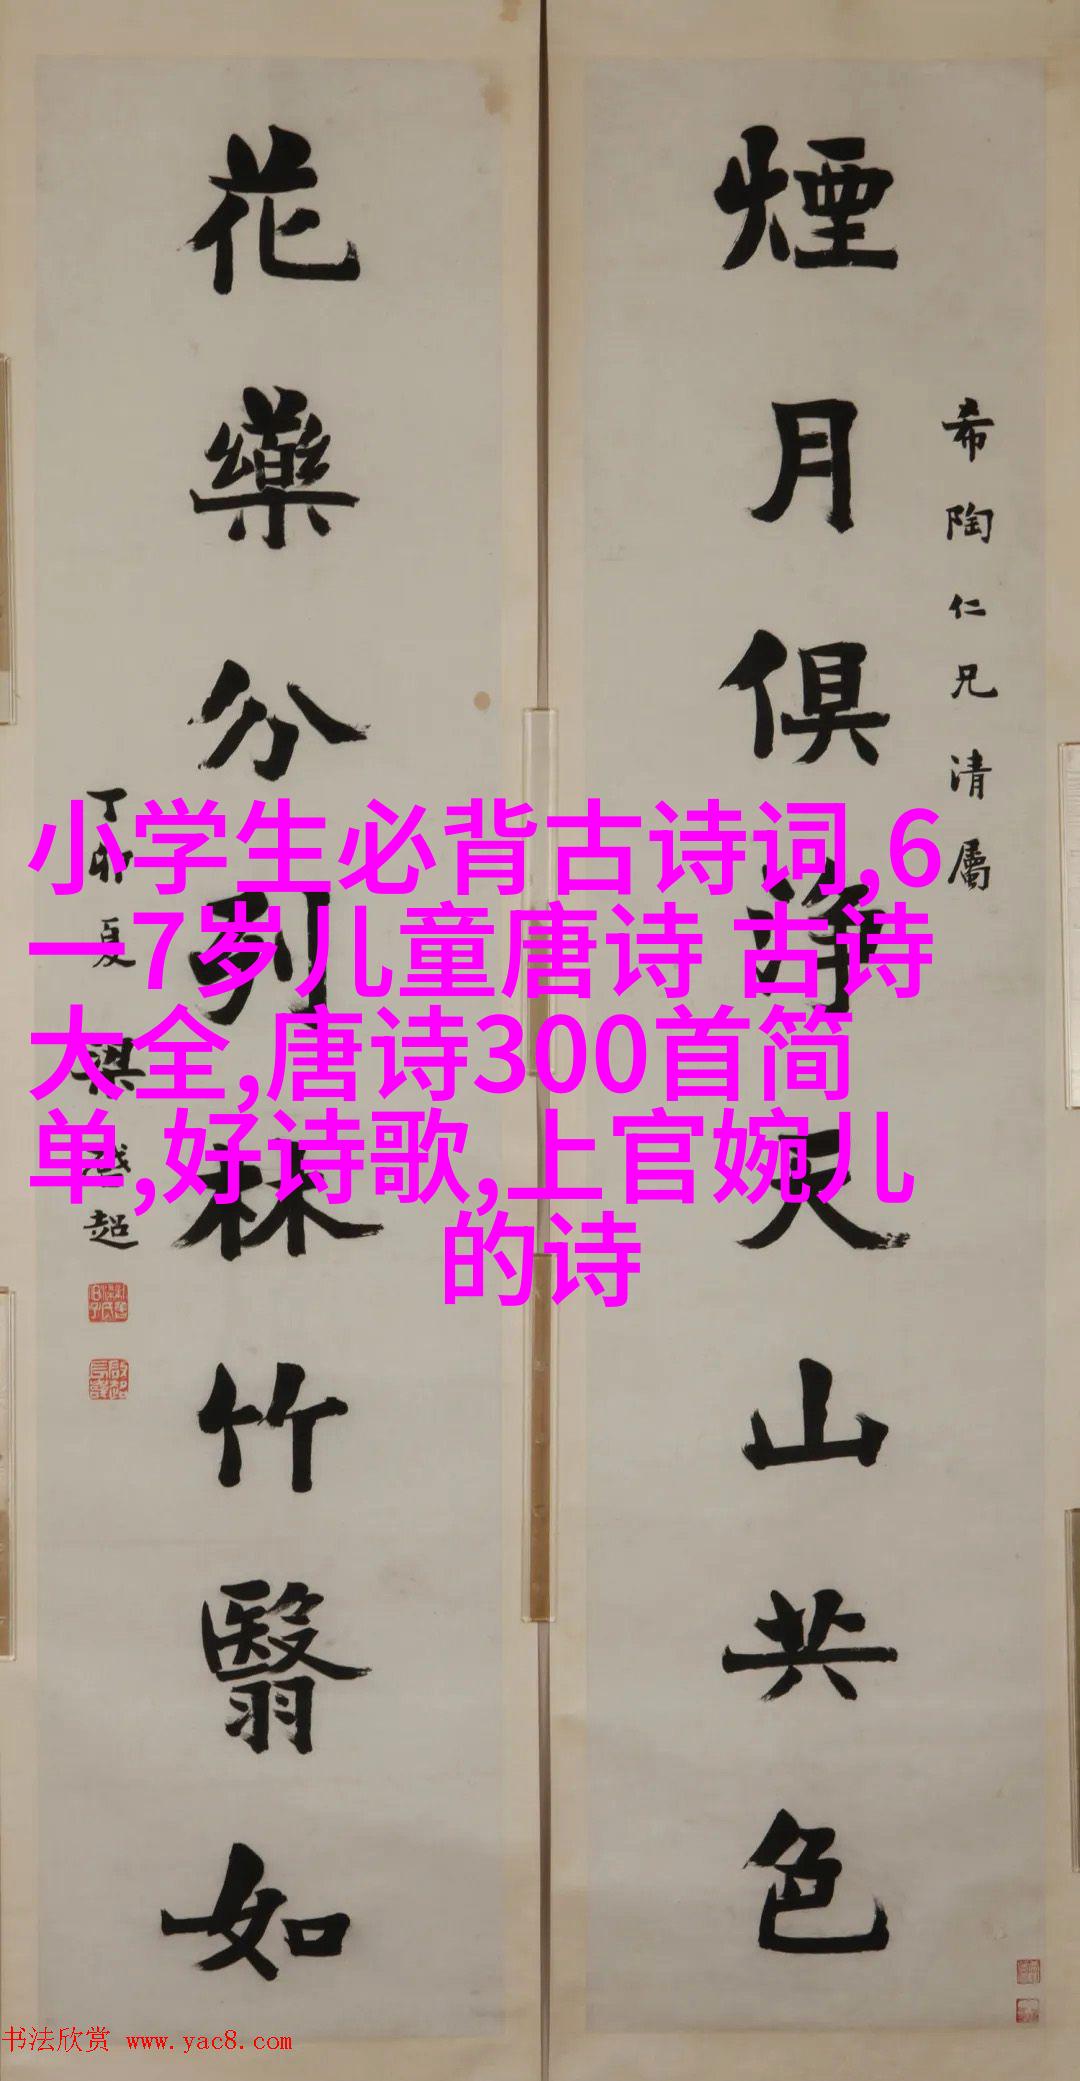 希陶仁兄清屬
煙月俱淨天山共色
花藥分列林竹翳如
丁卯夏梁啟超
小学生必背古诗词,6
一7岁儿童唐诗 古诗
大全,唐诗300首简
单,好诗歌,上官婉儿
的诗
书法欣赏 www.yac8.com